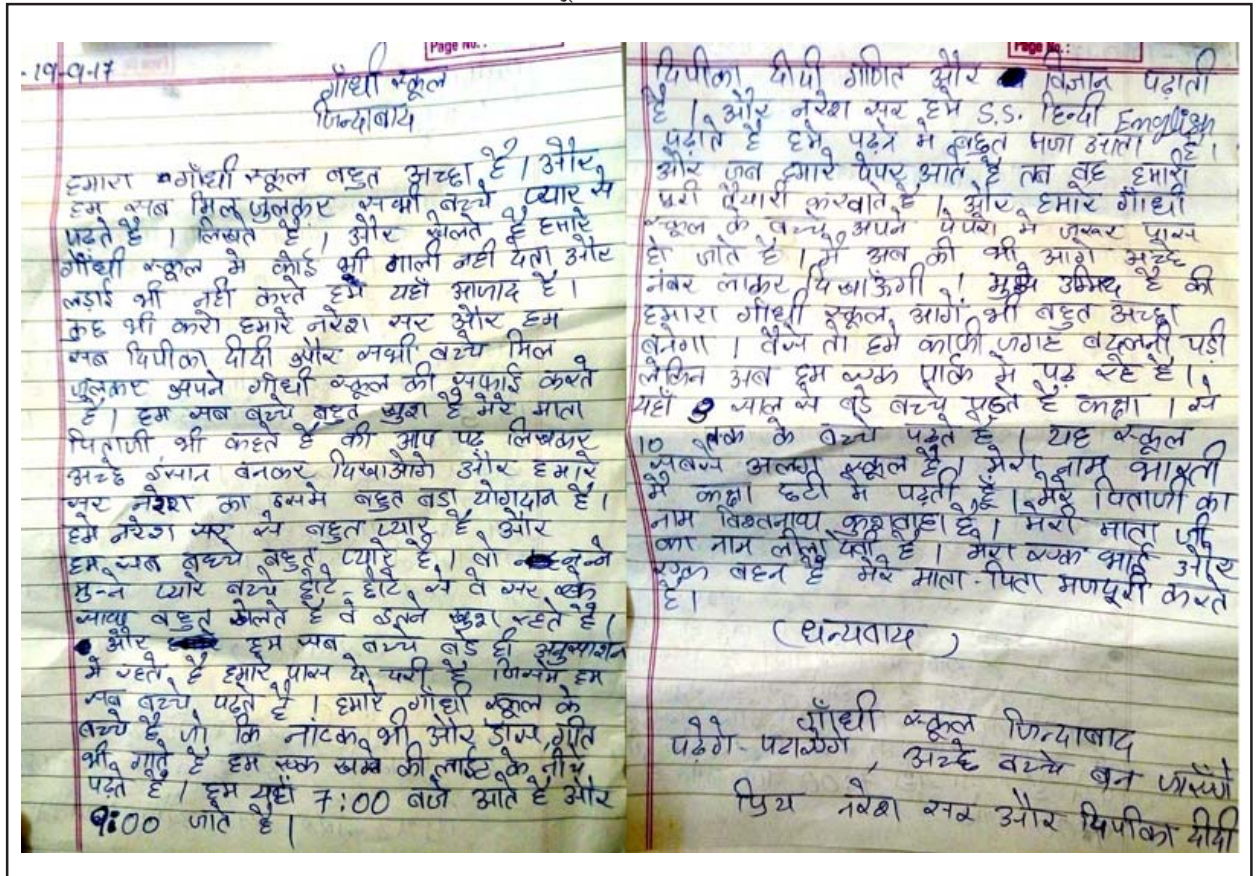 Page No. :
19-9-17
गाँधी स्कूल
जिन्दाबाद
हमारा गाँधी स्कूल बहुत अच्छा है। और
हम सब मिलजुलकर सभी बच्चे प्यार से
पढ़ते है। लिखते है। और खेलते है हमारे
गाँधी स्कूल मे कोई भी गाली नही देता और
लड़ाई भी नही करते हम यहाँ आजाद है।
कुछ भी करो हमारे नरेश सर और हम
सब दिपीका दीदी और सभी बच्चे मिल
जुलकर अपने गाँधी स्कूल की सफाई करते
है। हम सब बच्चे बहुत खुश है मेरे माता
पिताजी भी कहते है की आप पढ़ लिखकर
अच्छे इंसान बनकर दिखाओगे और हमारे
सर नरेश का इसमे बहुत बडा योगदान है।
हमे नरेश सर से बहुत प्यार है और
हम सब बच्चे बहुत प्यारे है। वो नन्ने
मुन्ने प्यारे बच्चे छोटे-छोटे से वे सर के
साथ बहुत खेलते है वे इतने खुश रहते है।
और हम सब बच्चे बडे ही अनुसाशन
मे रहते है हमारे पास दो दरी है जिसमे हम
सब बच्चे पढ़ते है। हमारे गाँधी स्कूल के
बच्चे है जो कि नाटक भी और डांस, गीत
भी गाते है हम एक खम्बे की लाईट के नीचे
पढ़ते है। हम यहाँ 7:00 बजे आते है और
9:00 जाते है।
Page No. :
दिपीका दीदी गणित और विज्ञान पढ़ाती
है। और नरेश सर हमे S.S. हिन्दी English
पढ़ाते है हमे पढ़ने मे बहुत मजा आता है।
और जब हमारे पेपर आते है तब वह हमारी
पुरी तैयारी करवाते है। और हमारे गाँधी
स्कूल के बच्चे अपने पेपरो मे जरूर पास
हो जाते है। मै अब की भी आगे अच्छे
नंबर लाकर दिखाऊंगी। मुझे उम्मिद है की
हमारा गाँधी स्कूल आगे भी बहुत अच्छा
बनेगा। वैसे तो हमे काफी जगह बदलनी पड़ी
लेकिन अब हम एक पार्क मे पढ़ रहे है।
यहाँ साल से बडे बच्चे पढ़ते है कक्षा 1 से
10 तक के बच्चे पढ़ते है। यह स्कूल
सबसे अलग स्कूल है। मेरा नाम भारती
मै कक्षा छटी मे पढ़ती हूँ। मेरे पिताजी का
नाम कुशवाहा है। मेरी माता जी
का नाम लीला देवी है। मेरा एक भाई और
एक बहन है मेरे माता-पिता मजदूरी करते
है।
(धन्यवाद)
गाँधी स्कूल जिन्दाबाद
पढ़ेगे-पढाएंगे, अच्छे बच्चे बन जाएंगे
प्रिय नरेश सर और दिपीका दीदी